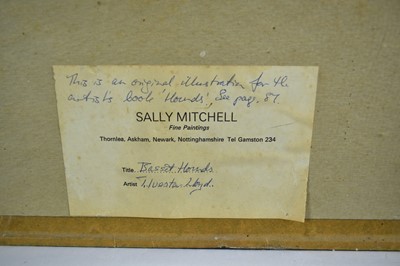 This is an original illustration for the
artist's book 'Hounds', See page 87.
SALLY MITCHELL
Fine Paintings
Thornlea, Askham, Newark, Nottinghamshire Tel Gamston 234
Title Basset Hounds
Artist T. Ivester Lloyd.